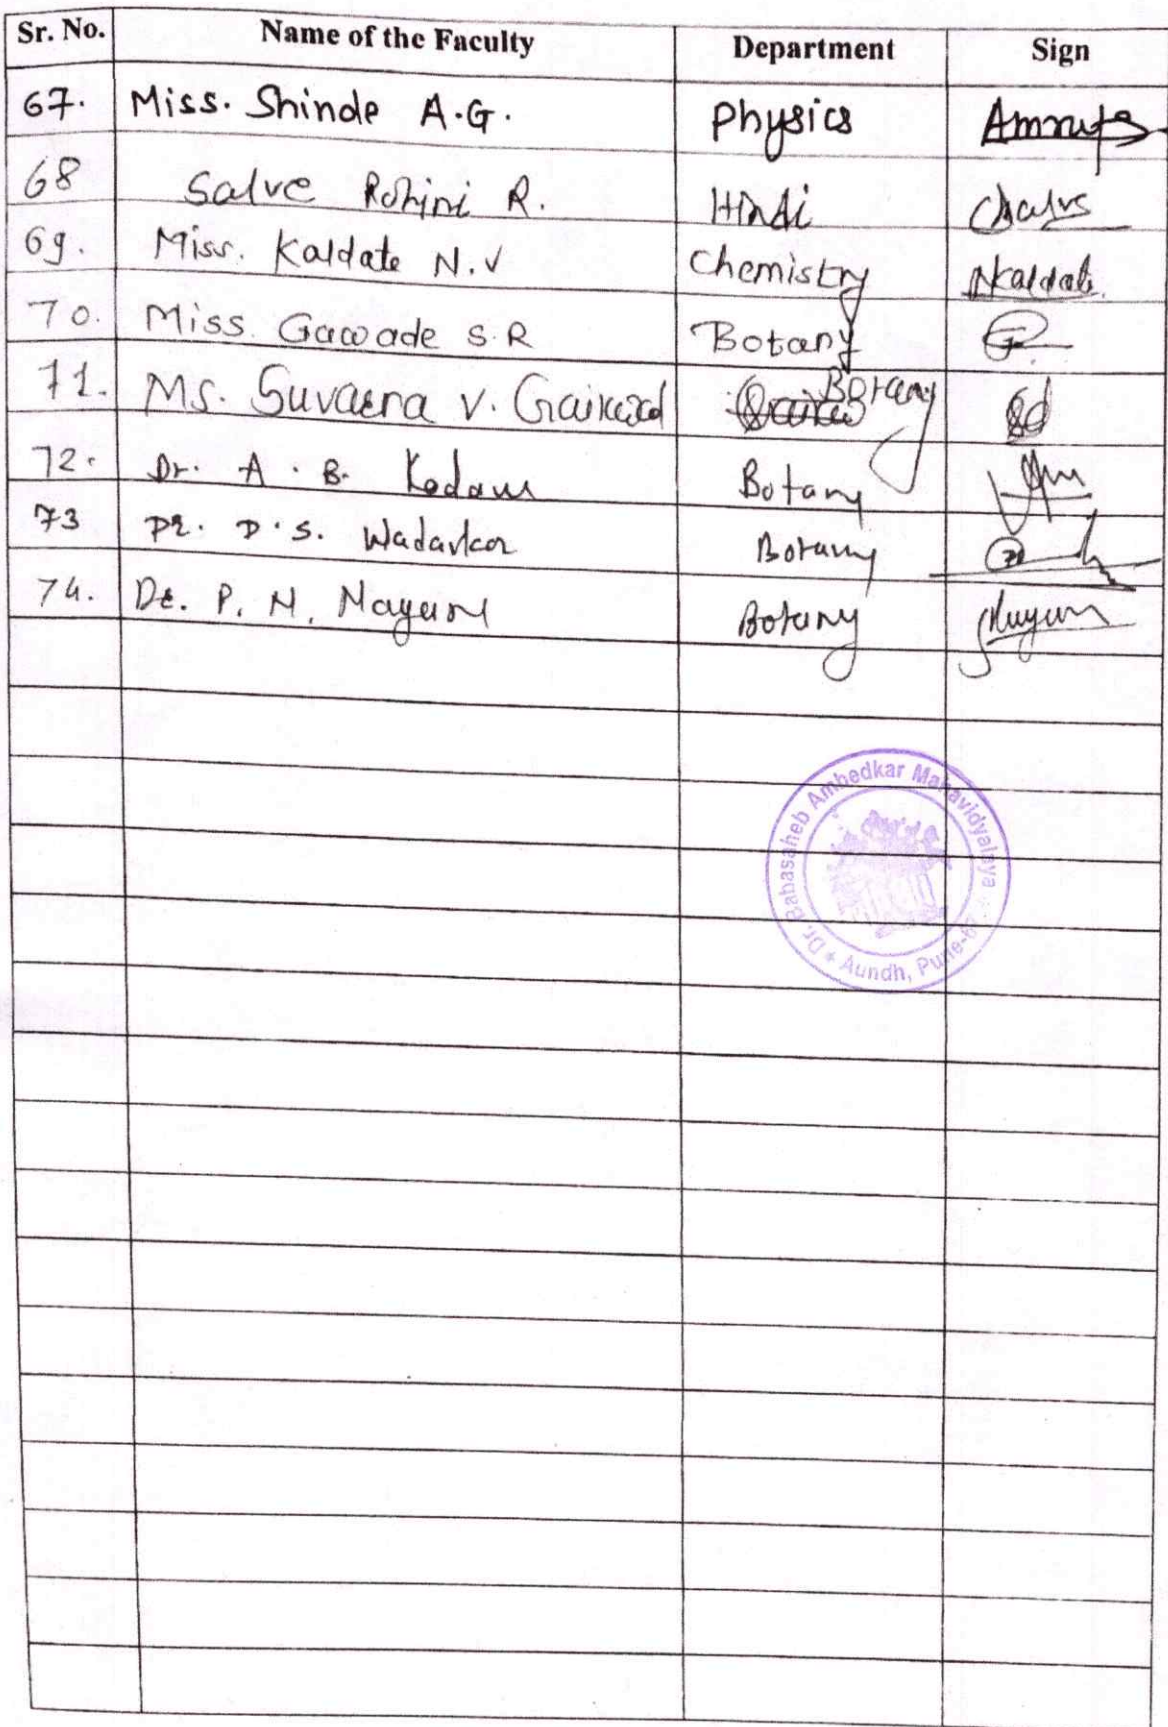 Sr. No. Name of the Faculty Department Sign
67. Miss. Shinde A.G. Physics Amruta
68 Salve Rohini R. Hindi
69. Miss. Kaldate N.V Chemistry NKaldate
70. Miss. Gawade S.R Botany
71. Ms. Suvarna V. Gaikwad Botany
72. Dr. A. B. Kadam Botany
73 Dr. D.S. Wadavkar Botany
74. Dr. P. N. Nayum Botany
Dr. Babasaheb Ambedkar Mahavidyalaya
Aundh, Pune-67